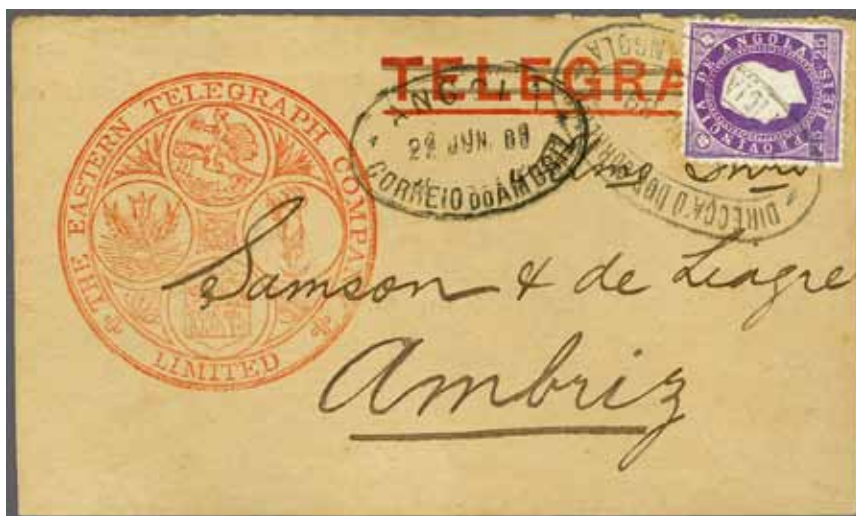 TELEGRA
THE EASTERN TELEGRAPH COMPANY
LIMITED
ANGOLA
JUN.
CORREIO DO AMBRIZ
ANGOLA
DIRECÇAO DOS CORREIOS
PROVINCIA DE ANGOLA
25 REIS 25
Samson & de Liagre
Ambriz